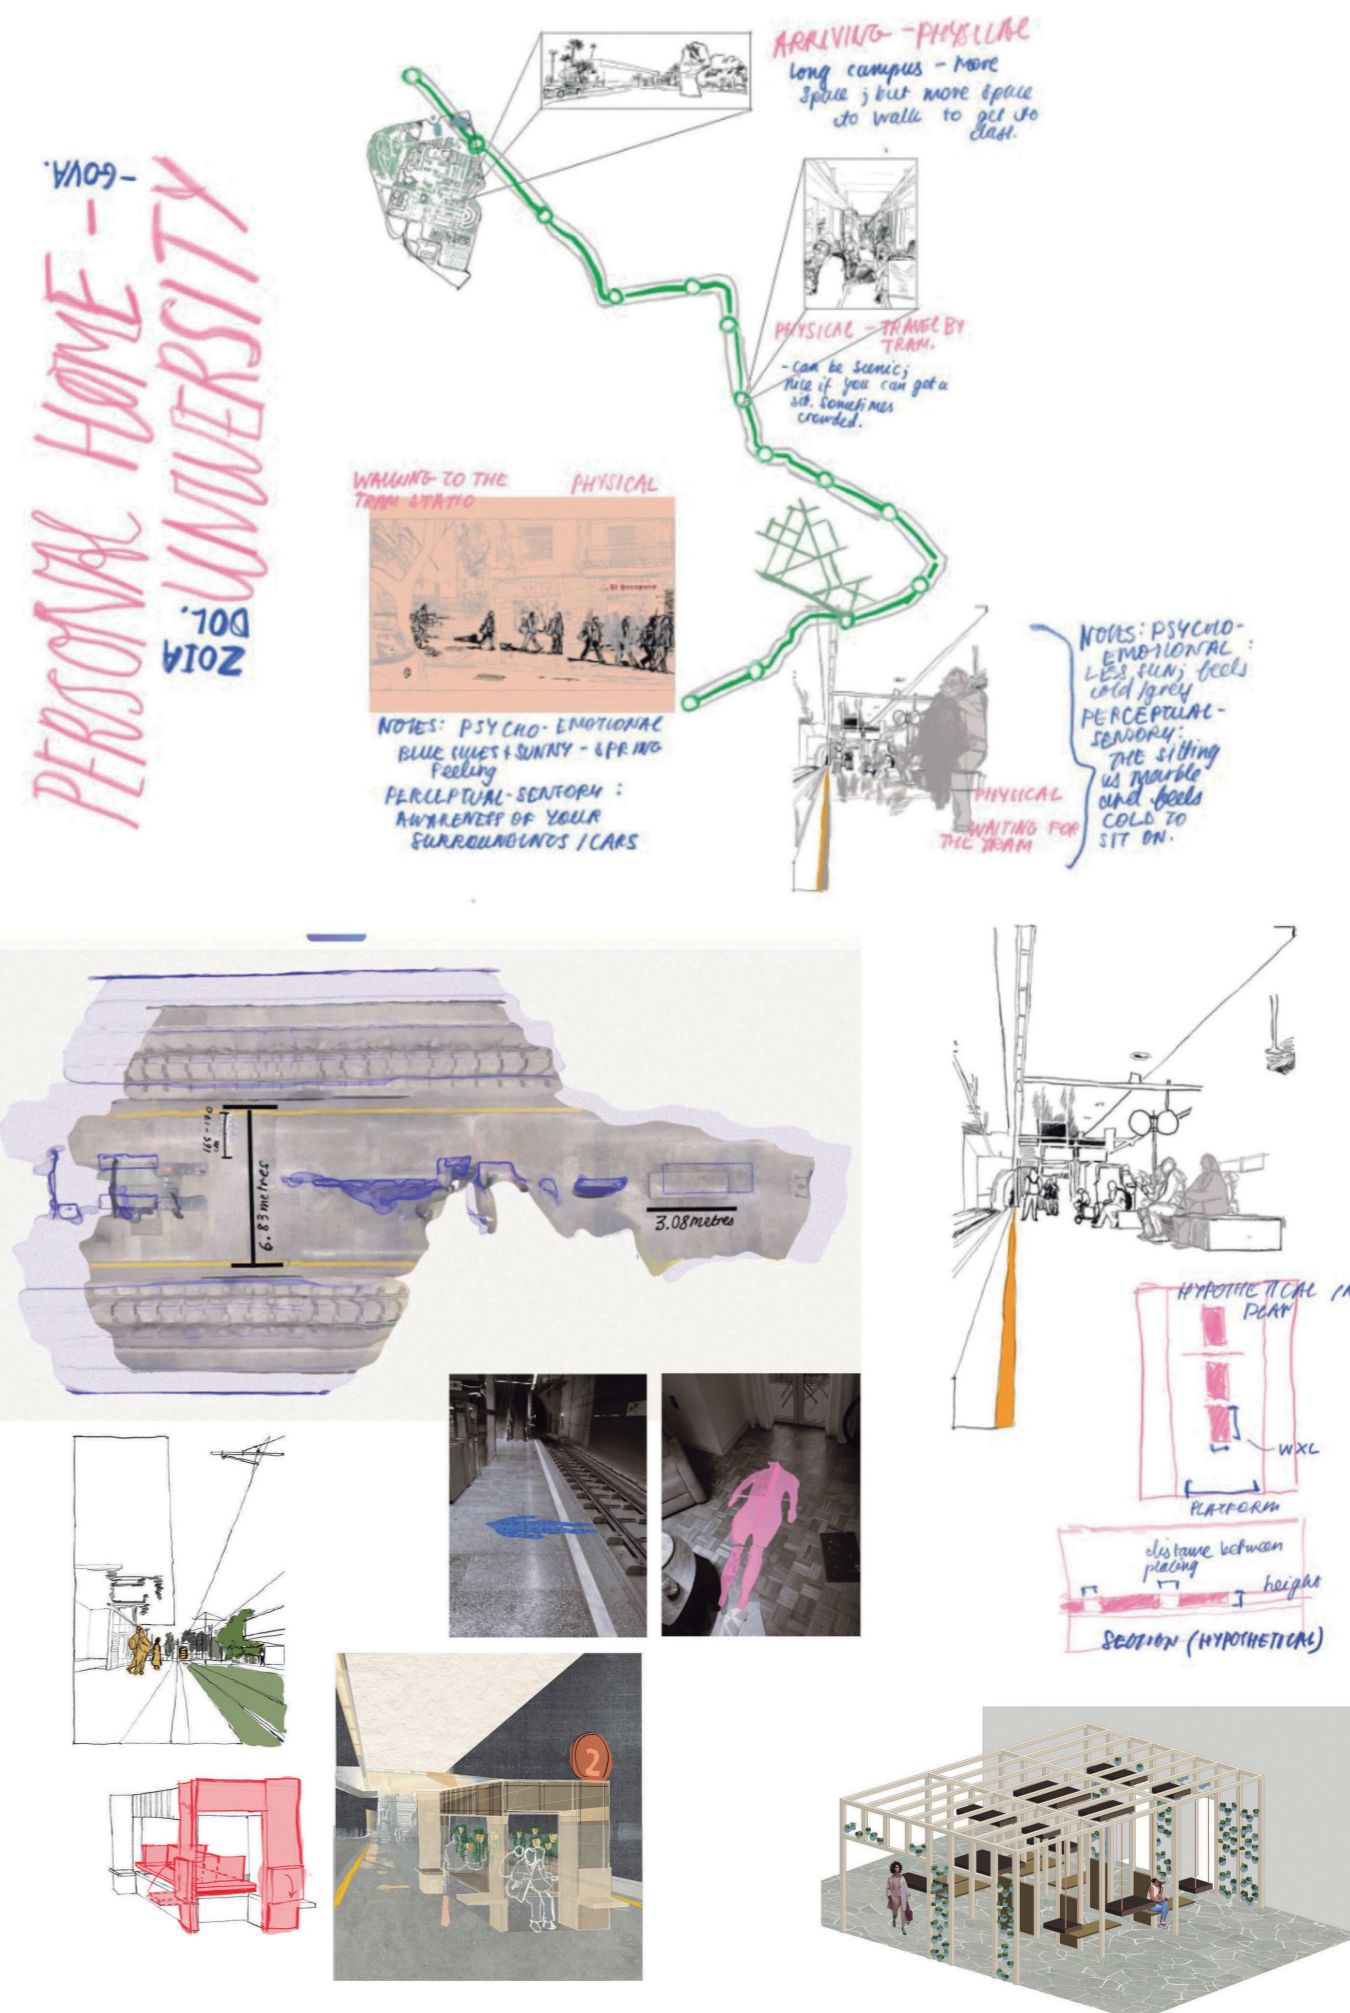 PERSONAL HOME -
UNIVERSITY
ZOIA
DOL.
-GOVA.
ARRIVING - PHYSICAL
Long campus - more
space ; but more space
to walk to get to
class.
PHYSICAL - TRAVEL BY
TRAM.
- can be scenic;
nice if you can get a
sit. sometimes
crowded.
WALKING TO THE
TRAM STATIO
PHYSICAL
NOTES: PSYCHO-EMOTIONAL
BLUE SKIES + SUNNY - SPRING
Feeling
PERCEPTUAL-SENSORY :
AWARENESS OF YOUR
SURROUNDINGS / CARS
PHYSICAL
WAITING FOR
THE TRAM
NOTES: PSYCHO-
EMOTIONAL :
LESS SUN; feels
cold/grey
PERCEPTUAL-
SENSORY:
THE sitting
is marble
and feels
COLD TO
SIT ON.
165-170
cm
6.83 metres
3.08 metres
HYPOTHETICAL
PLAN
WXL
PLATFORM
distance between
placing
height
SECTION (HYPOTHETICAL)
2